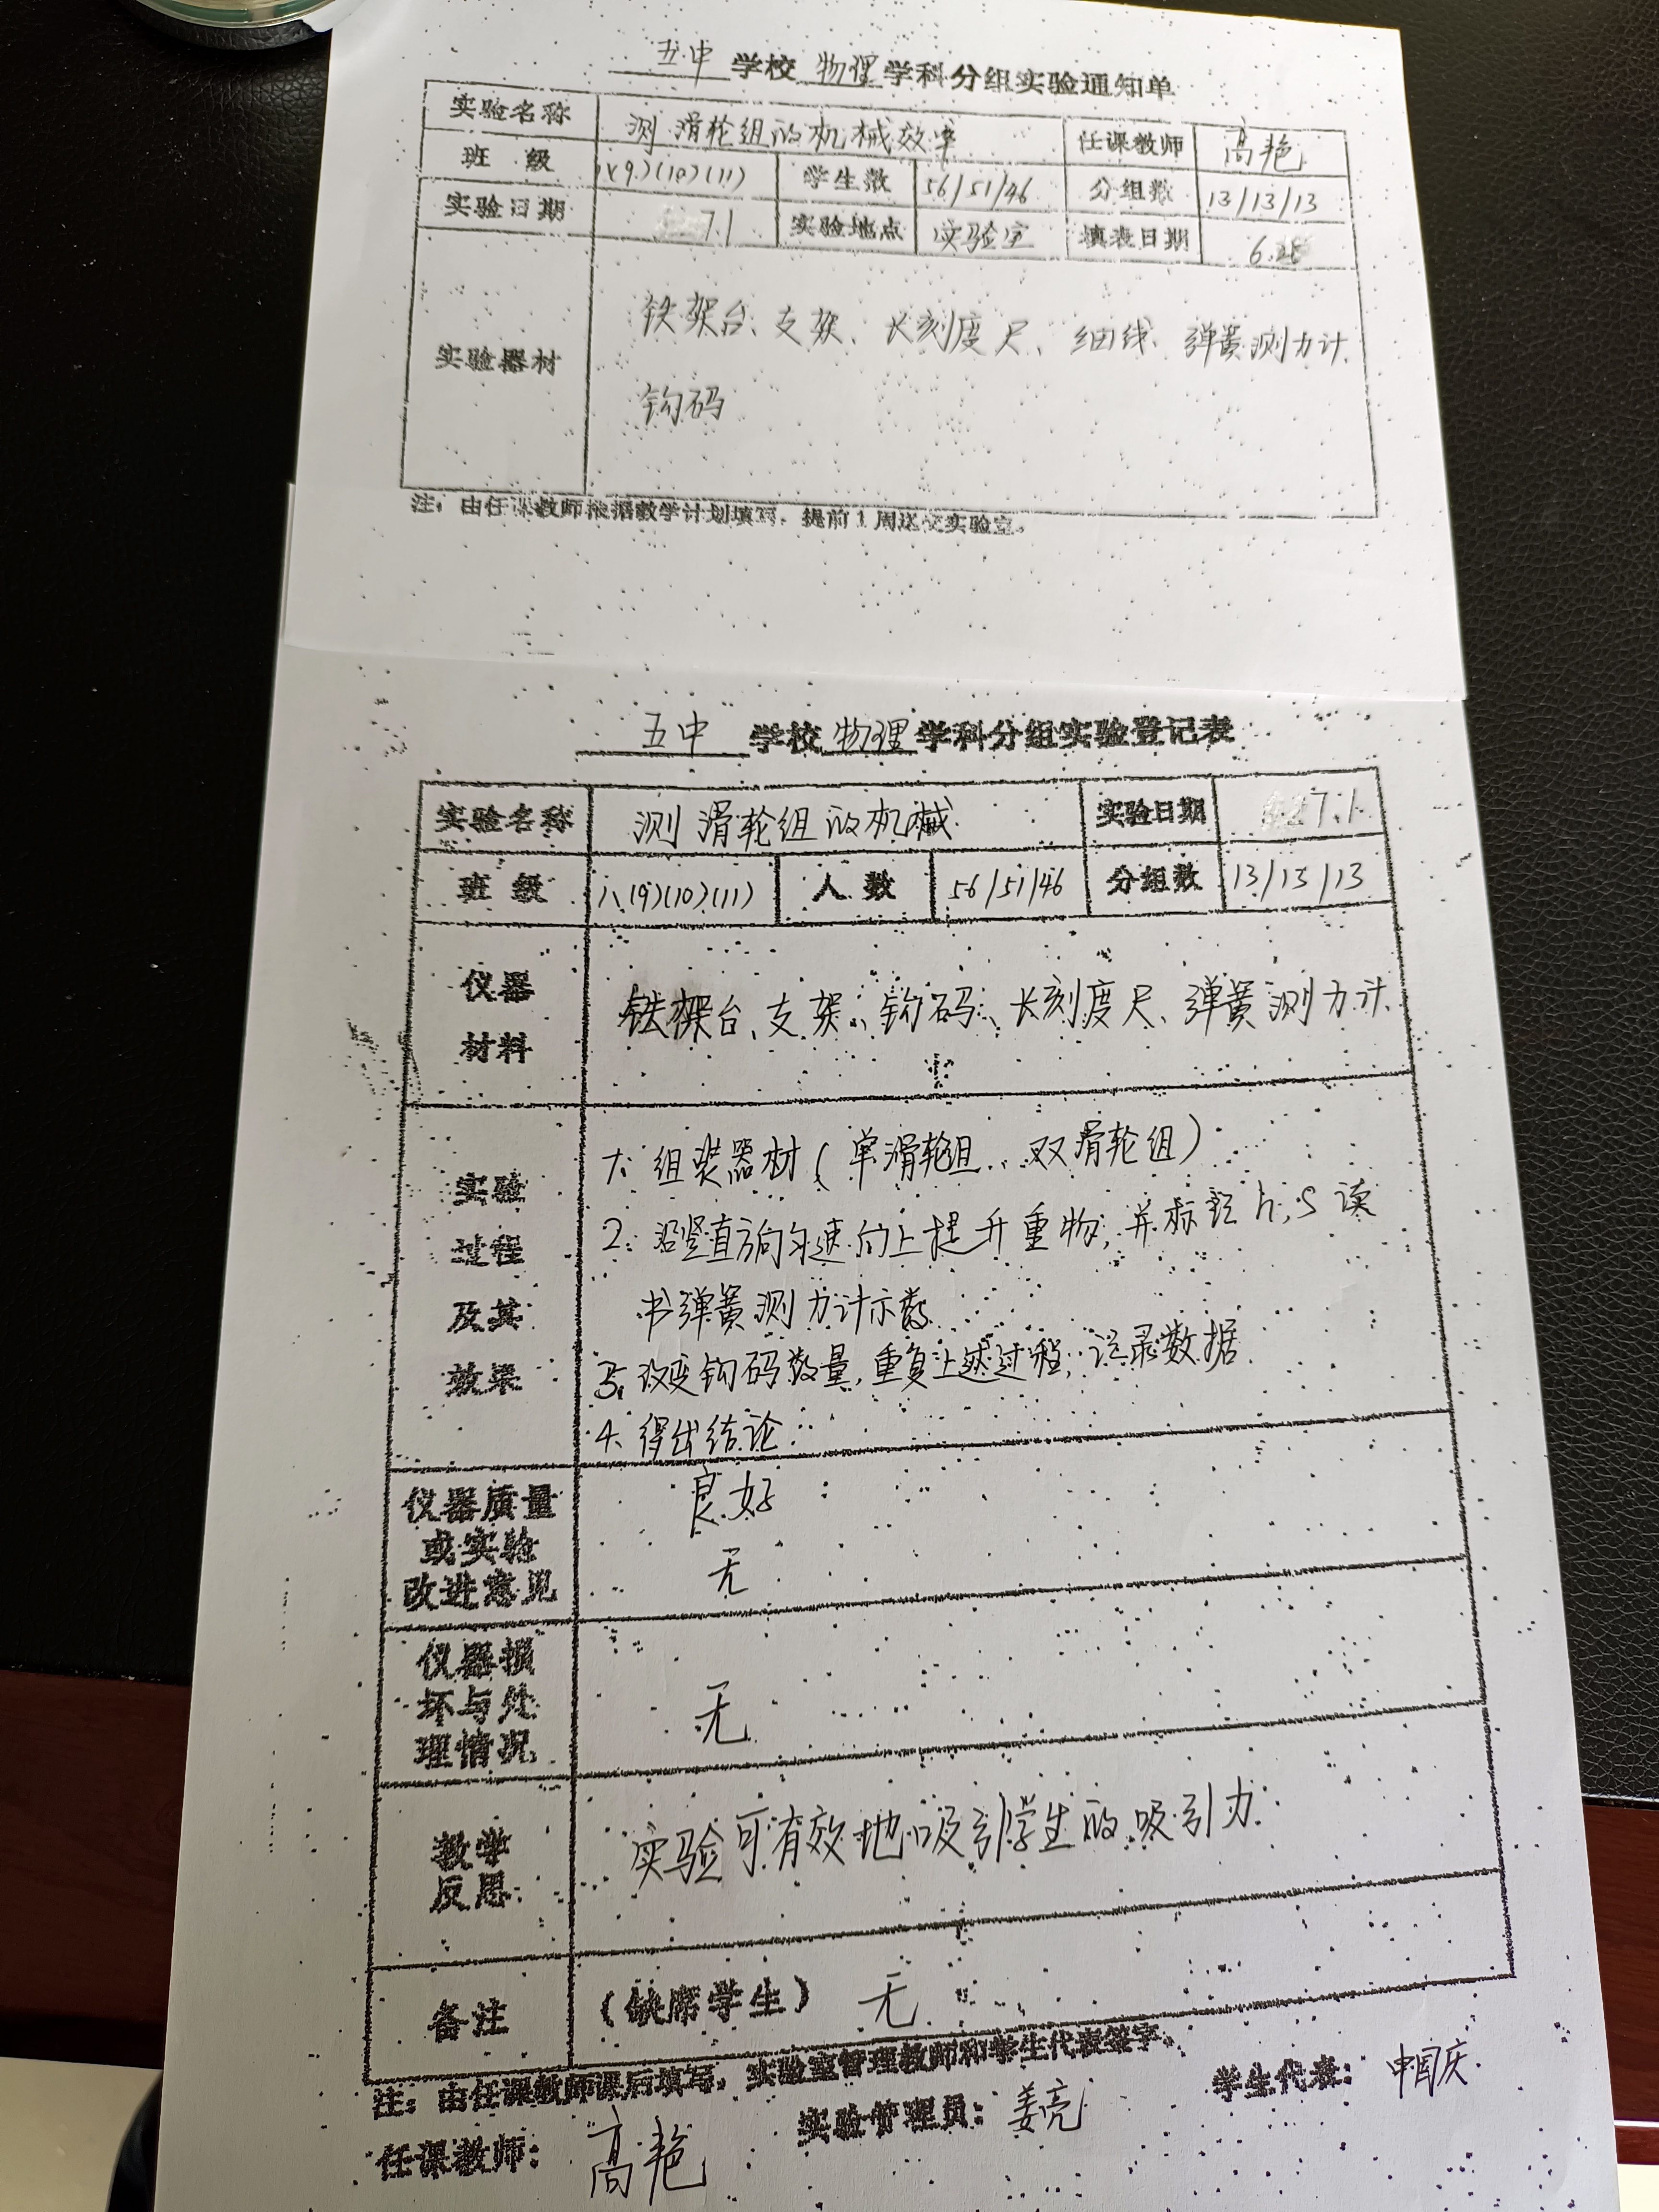 五中 学校 物理 学科分组实验通知单
实验名称 测滑轮组的机械效率 任课教师 高艳
班 级 八(9)(10)(11) 学生数 56/51/46 分组数 13/13/13
实验日期 7.1 实验地点 实验室 填表日期 6.28
实验器材 铁架台、支架、长刻度尺、细线、弹簧测力计
钩码
注:由任课教师根据教学计划填写,提前1周送交实验室。
五中 学校 物理 学科分组实验登记表
实验名称 测滑轮组的机械 实验日期 7.1
班 级 八(9)(10)(11) 人 数 56/51/46 分组数 13/13/13
仪器
材料
铁架台、支架、钩码、长刻度尺、弹簧测力计
实验
过程
及其
效果
1、组装器材(单滑轮组、双滑轮组)
2、沿竖直方向匀速向上提升重物,并标记h,S读
书弹簧测力计示数
3、改变钩码数量,重复上述过程,记录数据
4、得出结论
仪器质量
或实验
改进意见
良好
无
仪器损
坏与处
理情况
无
教学
反思
实验可有效地吸引学生的吸引力
备注 (缺席学生) 无
注:由任课教师课后填写,实验室管理教师和学生代表签字。
任课教师: 高艳 实验管理员: 姜亮 学生代表: 申国庆